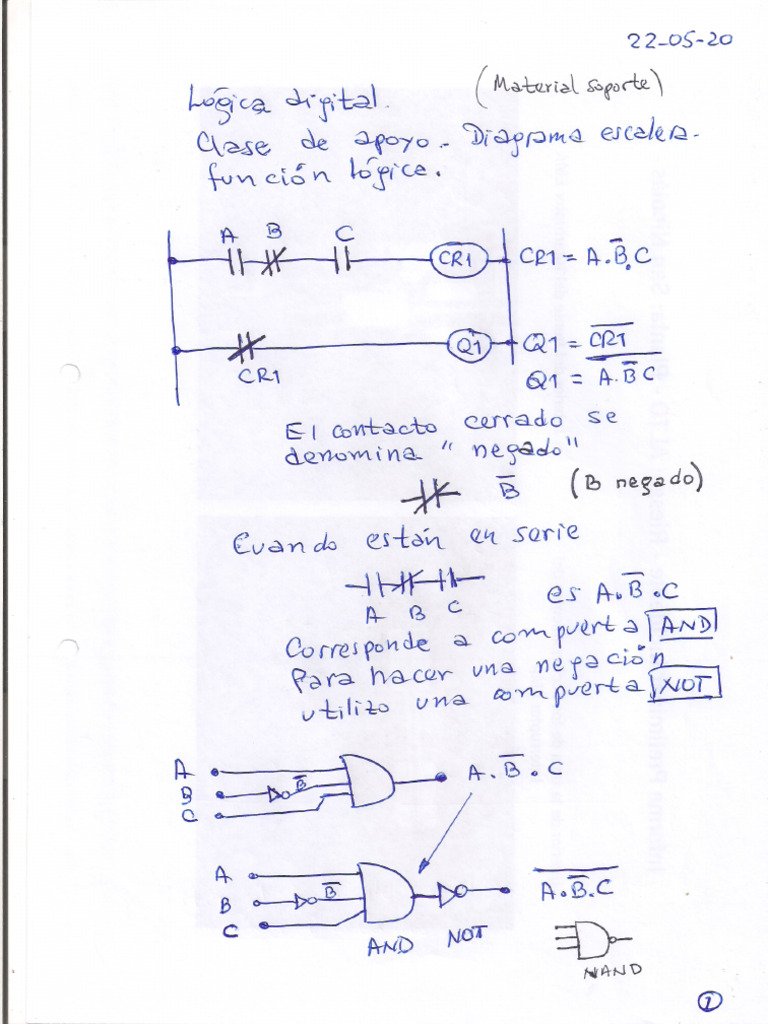 22-05-20
Lógica digital. (Material soporte)
Clase de apoyo - Diagrama escalera.
función lógica.
A B C
CR1 CR1 = A.B̅.C
Q1 Q1 = C̅R̅1̅
CR1 Q1 = A̅.̅B̿.̅C̅
El contacto cerrado se
denomina "negado"
B̅ (B negado)
Cuando están en serie
A B C es A.B̅.C
Corresponde a compuerta AND
Para hacer una negación
utilizo una compuerta NOT
A A.B̅.C
B B̅
C
A
B B̅ A̅.̅B̿.̅C̅
C
AND NOT
NAND
1